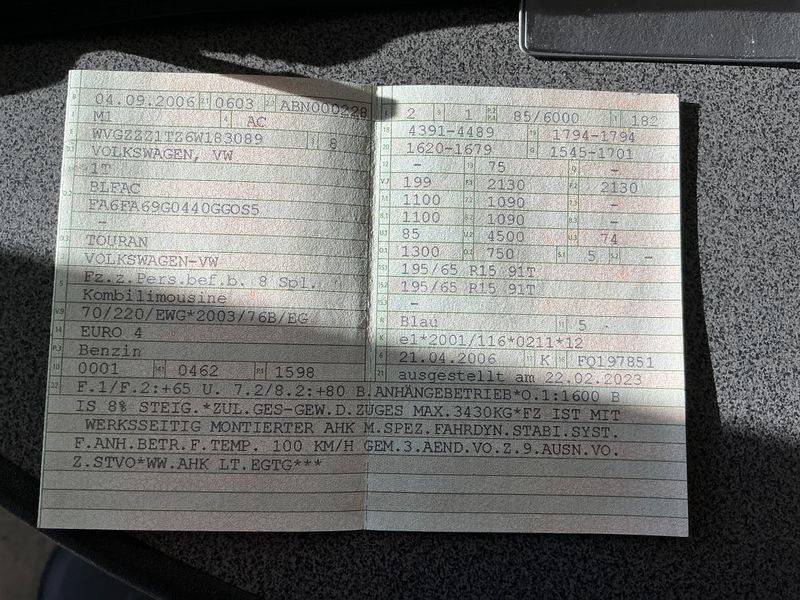 B 04.09.2006 2.1 0603 2.2 ABN000228
J M1 4 AC
E WVGZZZ1TZ6W183089 3 8
D.1 VOLKSWAGEN, VW
1T
D.2 BLFAC
FA6FA69G0440GGOS5
-
D.3 TOURAN
VOLKSWAGEN-VW
5 Fz.z.Pers.bef.b. 8 Spl.
Kombilimousine
V.9 70/220/EWG*2003/76B/EG
14 EURO 4
P.3 Benzin
10 0001 14.1 0462 P.1 1598
L 2 9 1 P.2 P.4 85/6000 T 182
18 4391-4489 19 1794-1794
20 1620-1679 G 1545-1701
12 - 13 75 Q -
V.7 199 F.1 2130 F.2 2130
7.1 1100 7.2 1090 7.3 -
8.1 1100 8.2 1090 8.3 -
U.1 85 U.2 4500 U.3 74
O.1 1300 O.2 750 S.1 5 S.2 -
15.1 195/65 R15 91T
15.2 195/65 R15 91T
15.3 -
R Blau 11 5
K e1*2001/116*0211*12
6 21.04.2006 17 K 16 FQ197851
21 ausgestellt am 22.02.2023
22 F.1/F.2:+65 U. 7.2/8.2:+80 B.ANHÄNGEBETRIEB*O.1:1600 B
IS 8% STEIG.*ZUL.GES-GEW.D.ZUGES MAX.3430KG*FZ IST MIT
WERKSSEITIG MONTIERTER AHK M.SPEZ.FAHRDYN.STABI.SYST.
F.ANH.BETR.F.TEMP. 100 KM/H GEM.3.AEND.VO.Z.9.AUSN.VO.
Z.STVO*WW.AHK LT.EGTG***